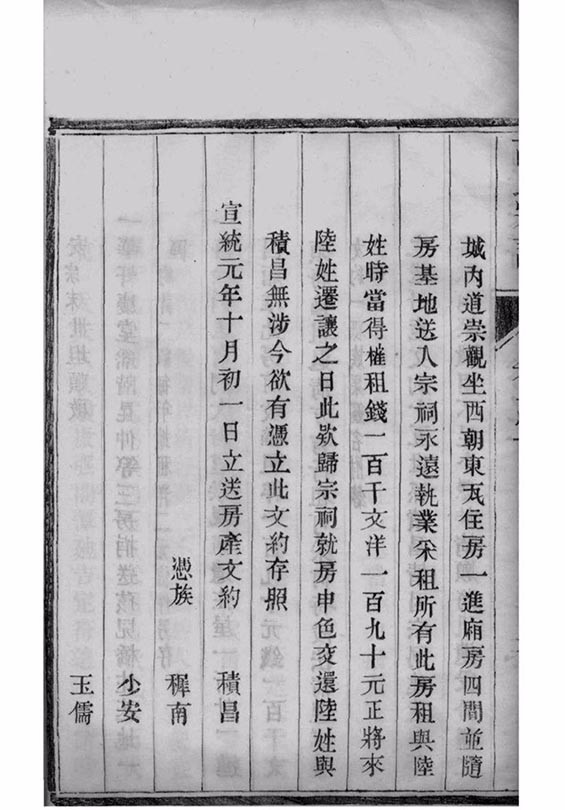 城內道崇觀坐西朝東瓦住房一進廂房四間並隨
房基地送入宗祠永遠執業采租所有此房租與陸
姓時當得權租錢一百千文洋一百九十元正將來
陸姓遷讓之日此欵歸宗祠就房申色交還陸姓與
積昌無涉今欲有憑立此文約存照
宣統元年十月初一日立送房產文約 積昌
憑族 穉南
少安
玉儒